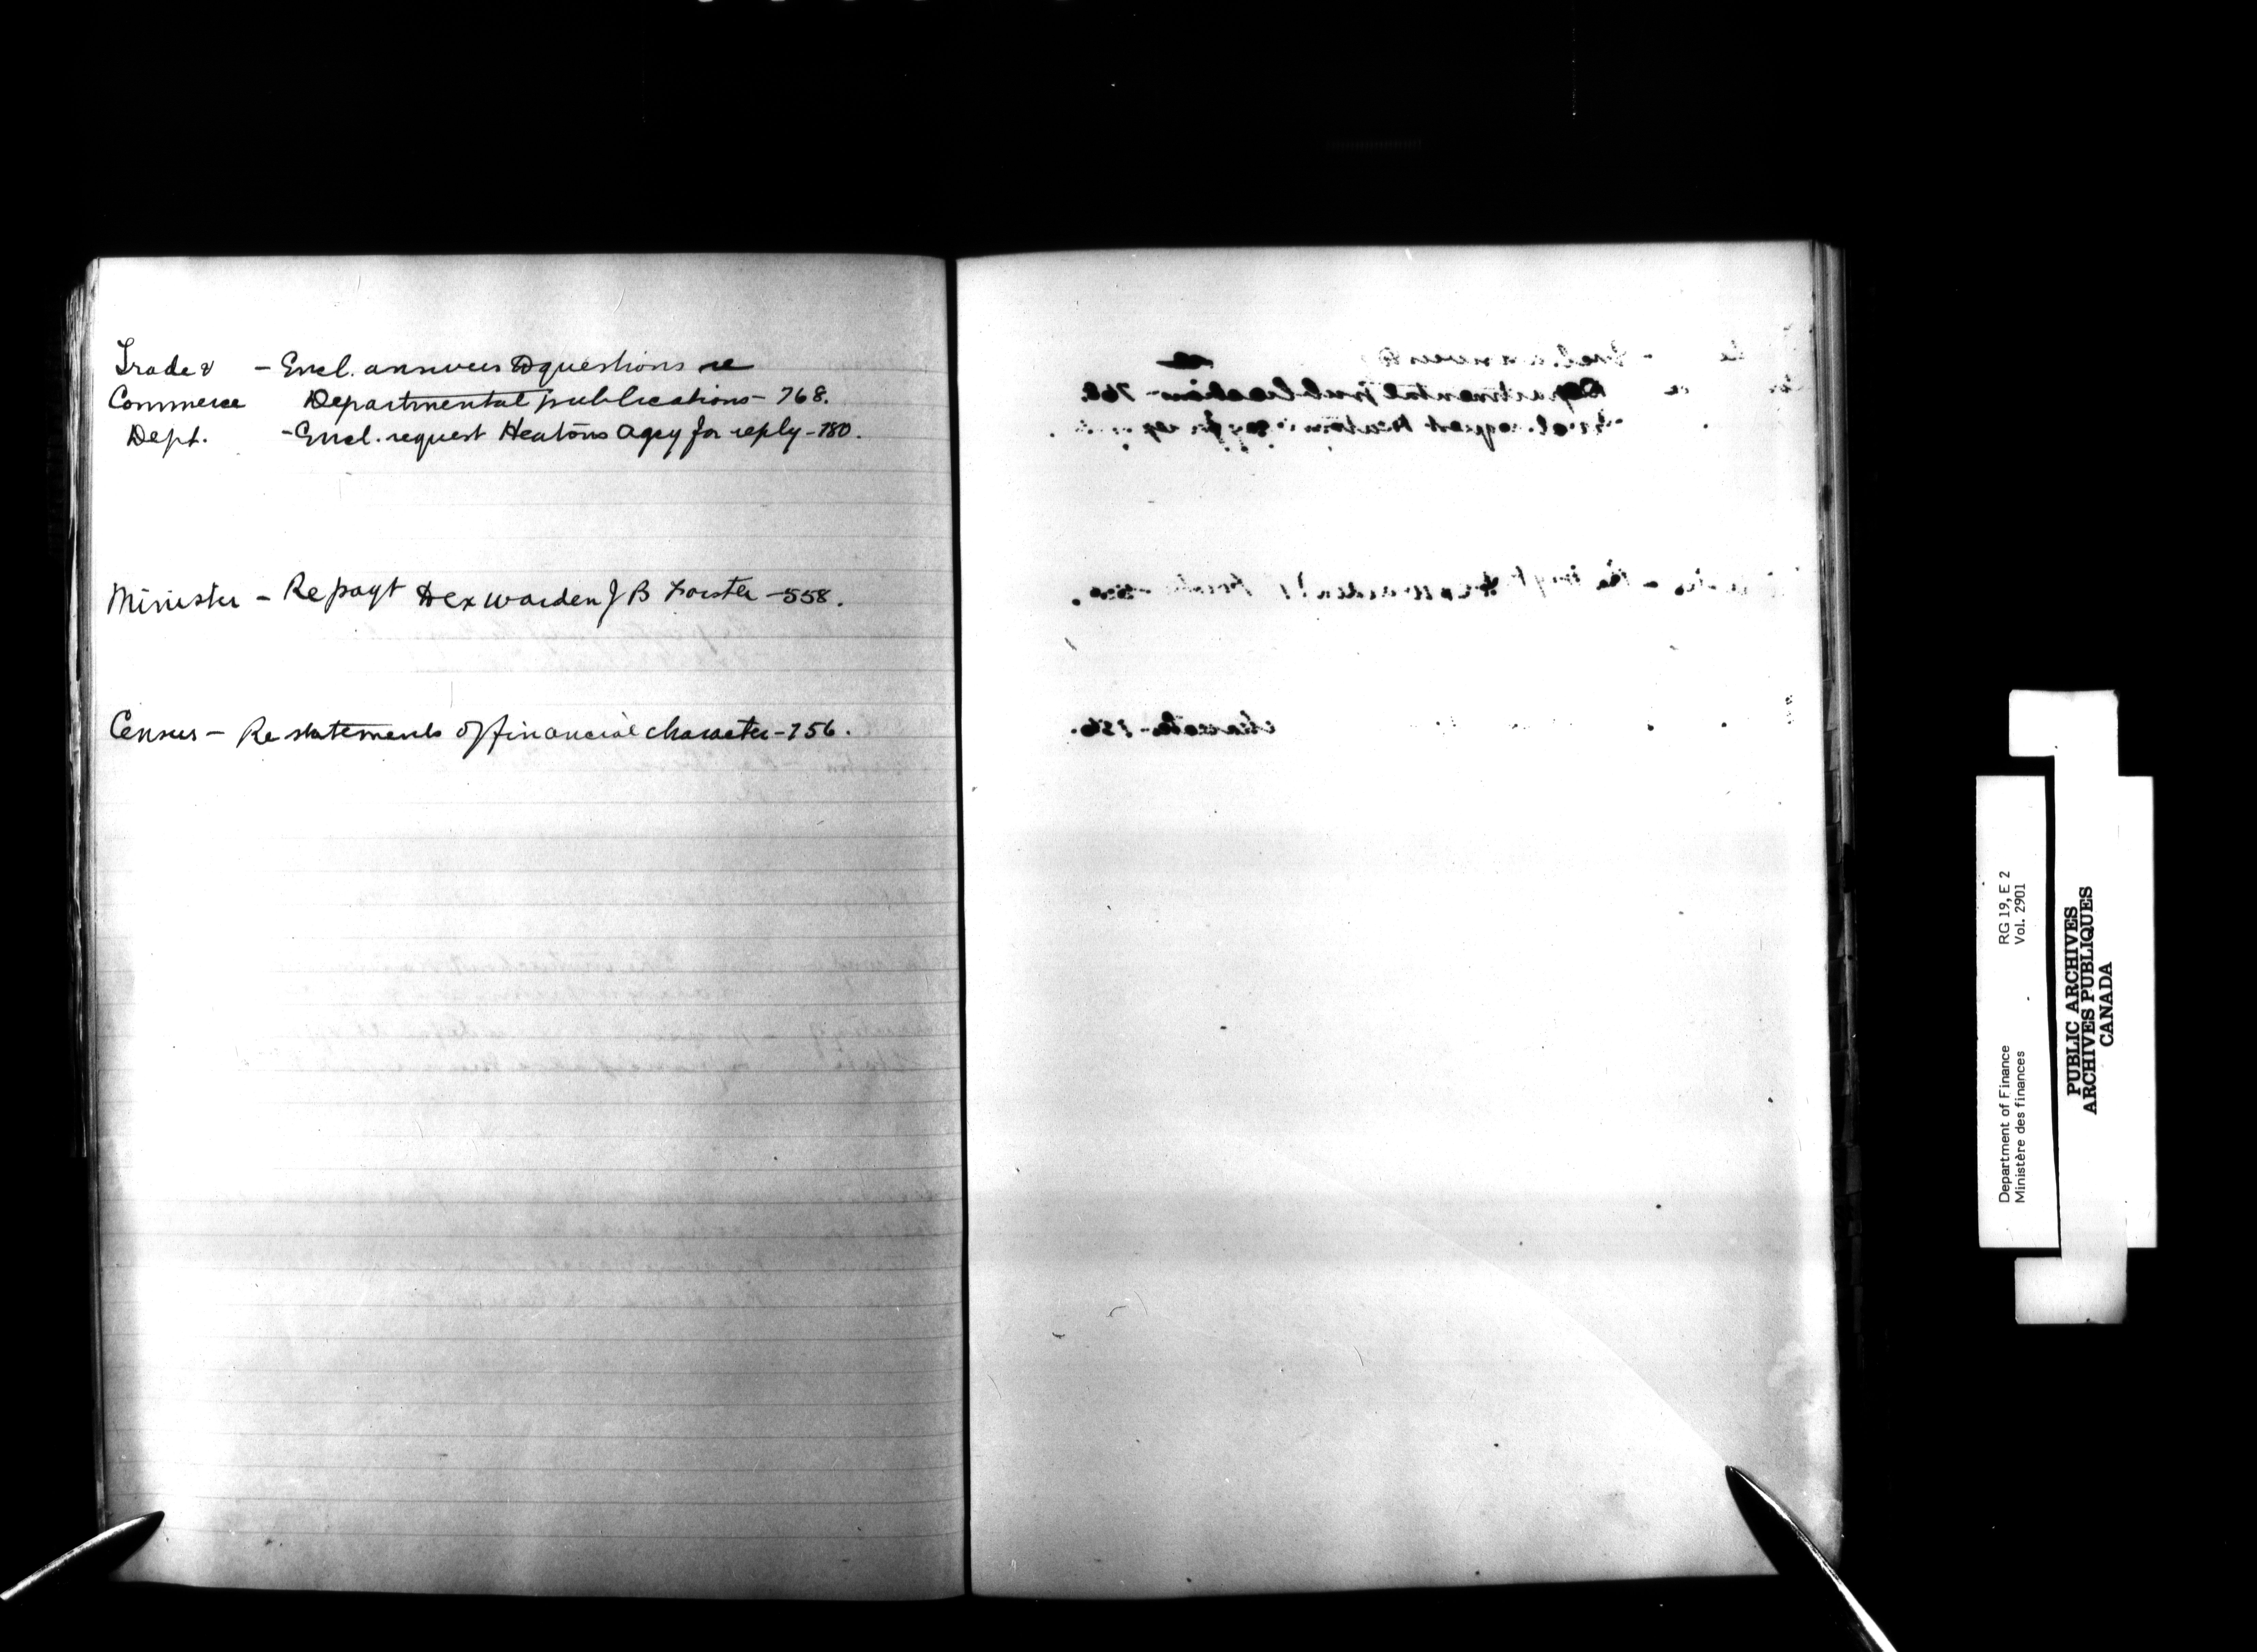 Trade & — Encl. answers to questions re
Commerce Departmental publications – 768.
Dept. – Encl. request Heatons Agcy for reply – 780.
Minister – Re payt to ex warden J B Forster – 558.
Census – Re statements of financial character – 756.
Department of Finance RG 19, E 2
Ministère des finances Vol. 2901
PUBLIC ARCHIVES
ARCHIVES PUBLIQUES
CANADA